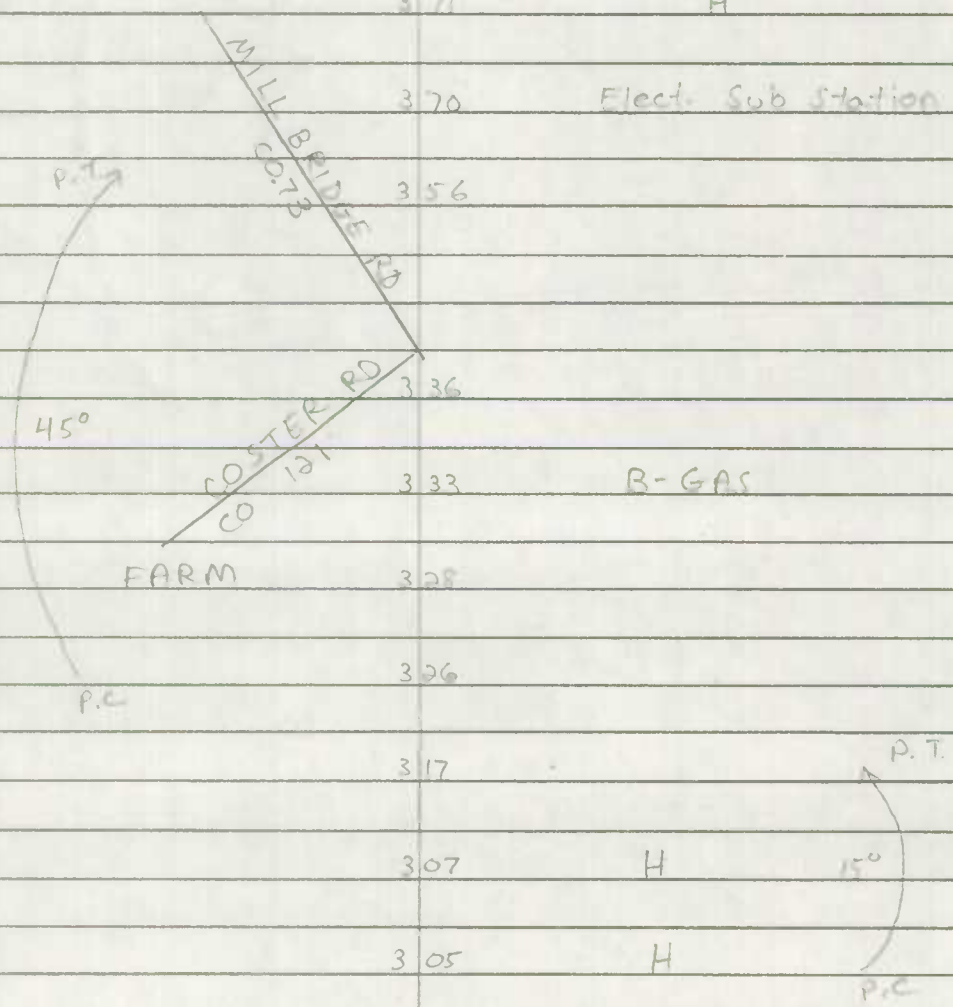 H
MILL BRIDGE RD
CO.73
3 70 Elect. Sub Station
P.T.
3 56
COSTER RD
CO 121
3 36
45°
3 33 B-GAS
FARM
3 28
3 26
P.C
3 17
P.T.
3 07 H 15°
3 05 H
P.C